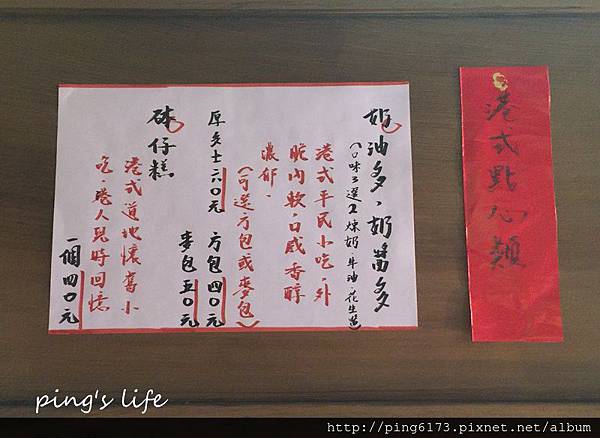 港式點心類
奶油多、奶醬多
(口味3選2煉奶、牛油、花生醬)
港式平民小吃,外
脆內軟,口感香醇
濃郁。
(可選方包或麥包)
厚多士六0元 方包四0元
麥包五0元
砵仔糕
港式道地懷舊小
吃,港人兒時回憶
一個四0元
ping's life
http://ping6173.pixnet.net/album